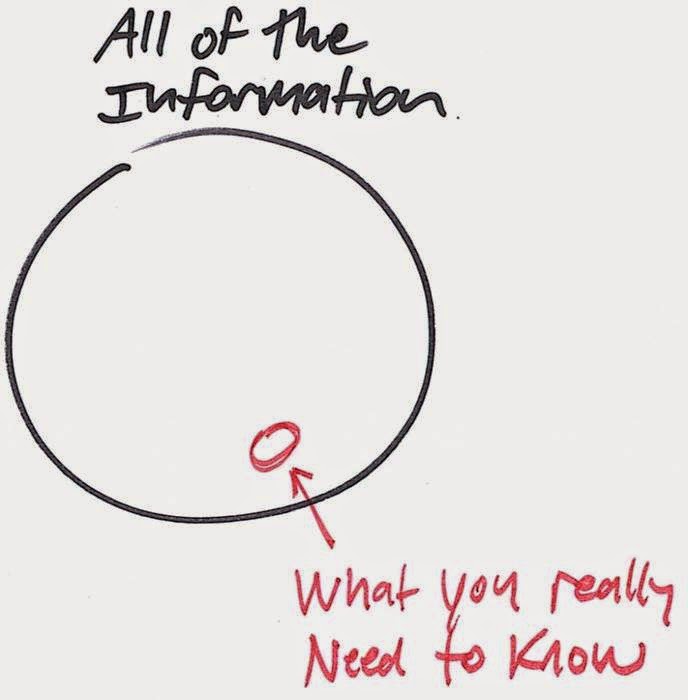 All of the
Information
What you really
Need to Know